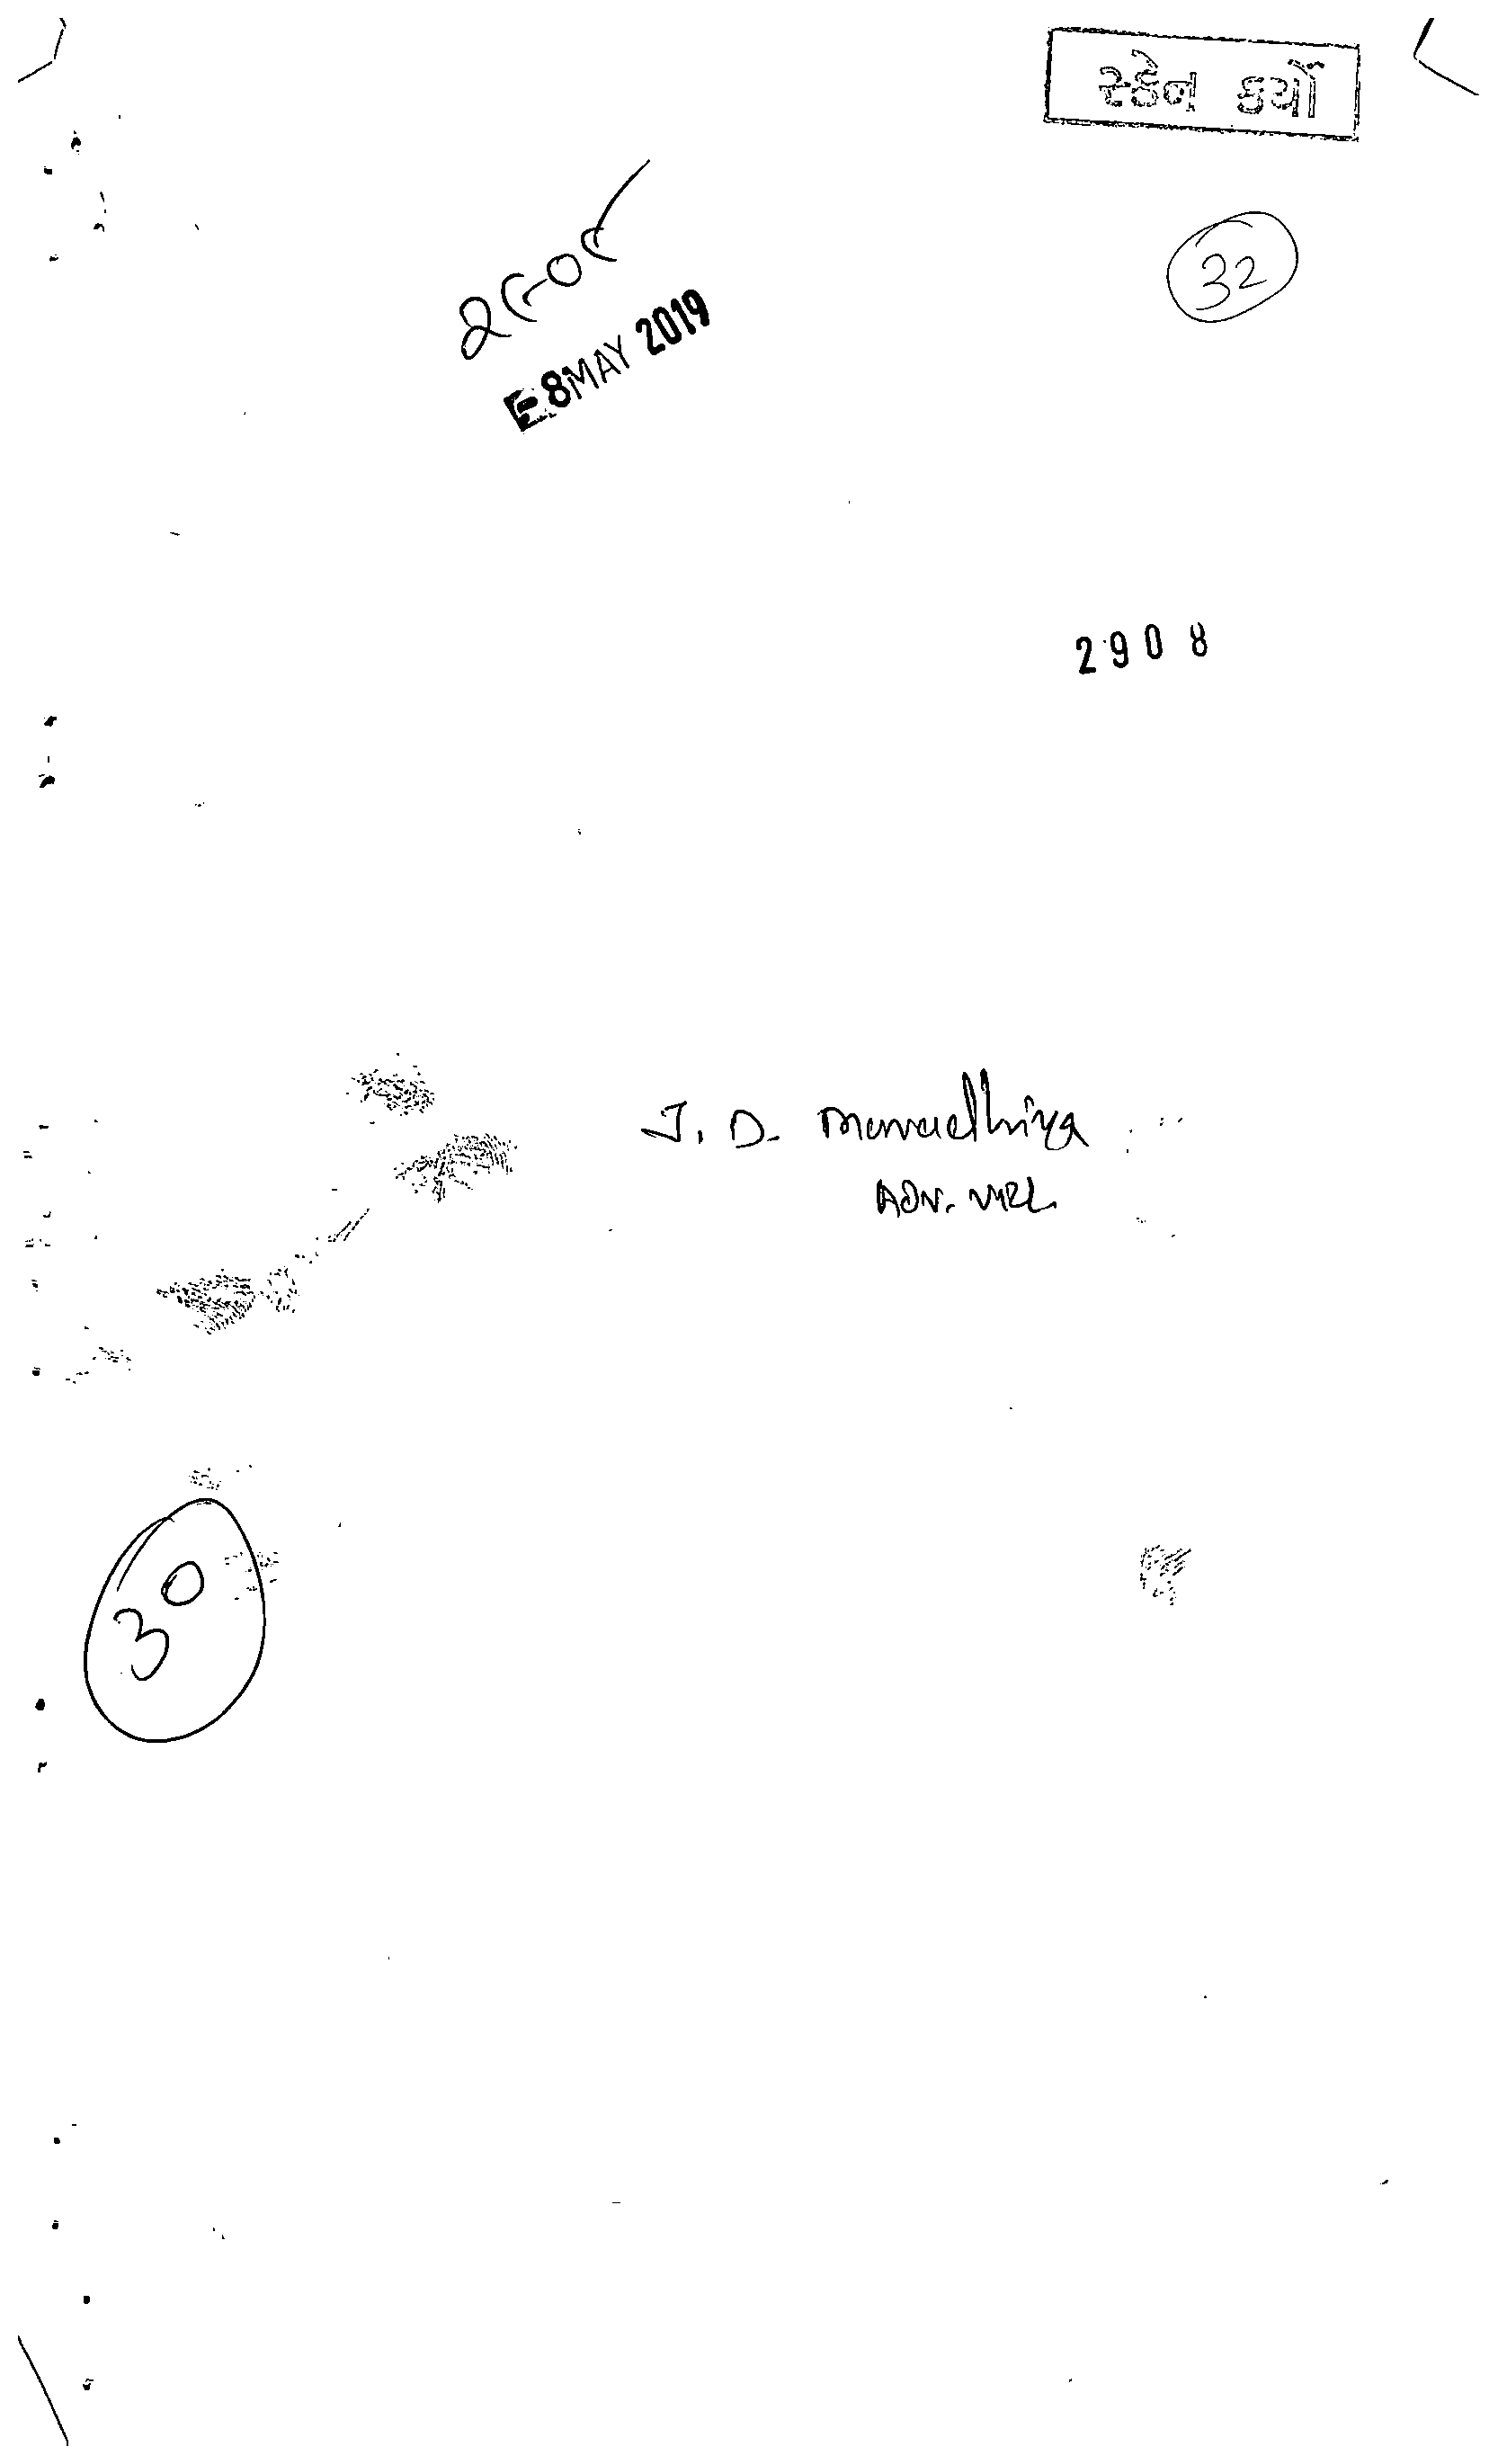 સ્કેન કર્યો
32
૨૯૦૮
8 MAY 2019
2908
J. D. Mavadhiya
ADV. VPL
30